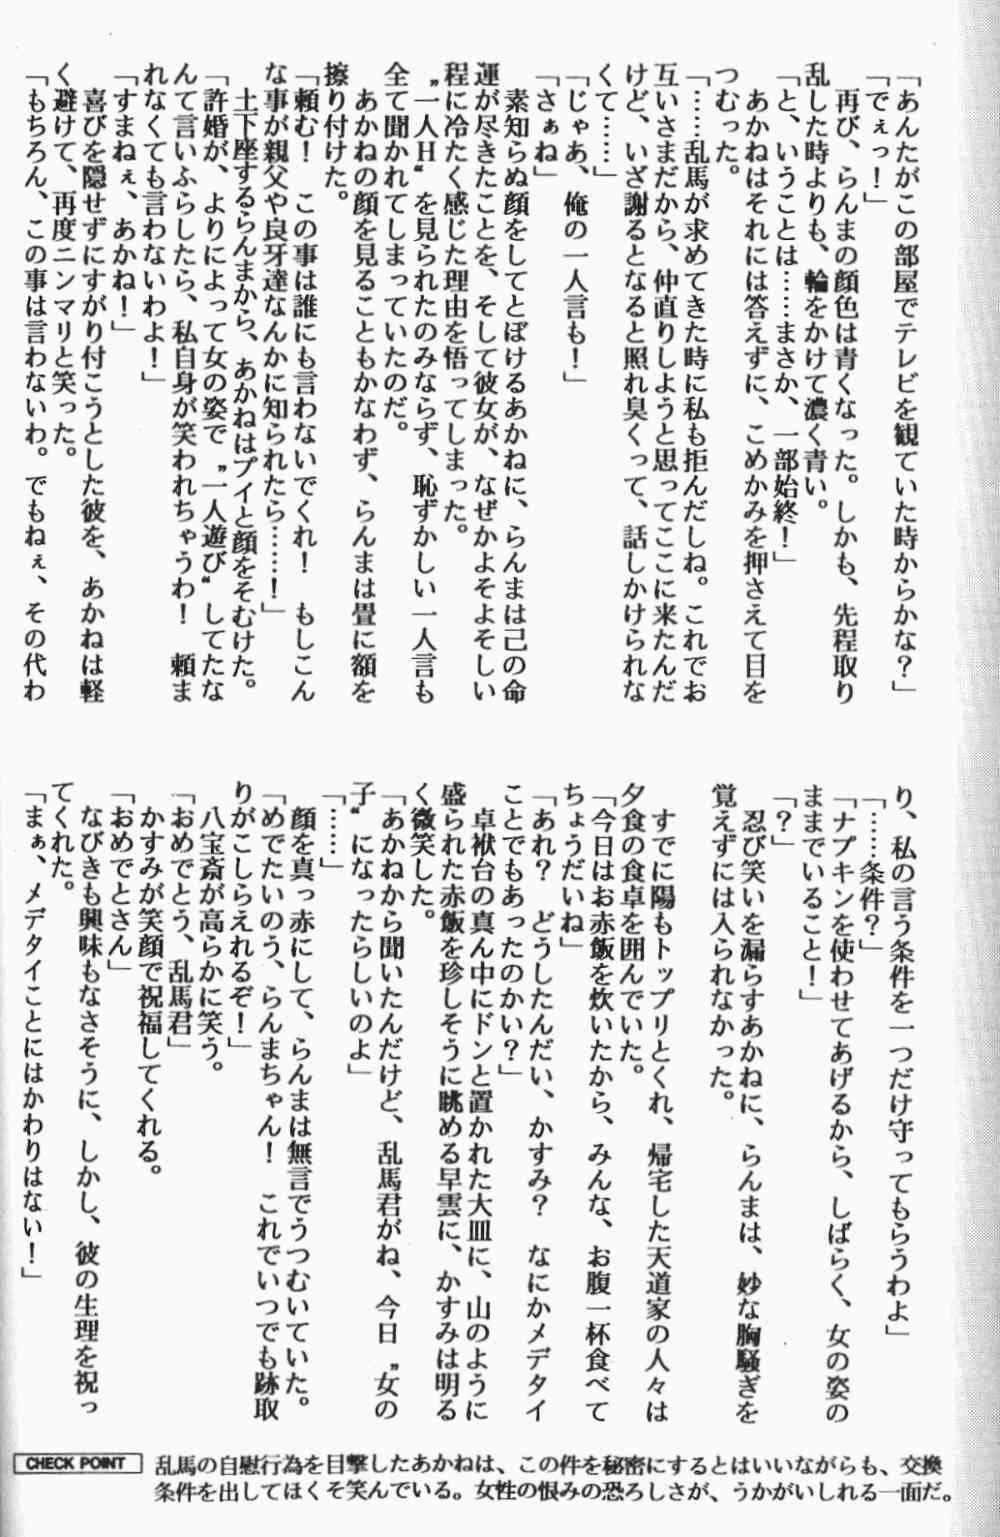 「あんたがこの部屋でテレビを観ていた時からかな？」
「でぇっ！」
　再び、らんまの顔色は青くなった。しかも、先程取り
乱した時よりも、輪をかけて濃く青い。
「と、いうことは……まさか、一部始終！」
　あかねはそれには答えずに、こめかみを押さえて目を
つむった。
「……乱馬が求めてきた時に私も拒んだしね。これでお
互いさまだから、仲直りしようと思ってここに来たんだ
けど、いざ謝るとなると照れ臭くって、話しかけられな
くて……」
「じゃあ、俺の一人言も！」
「さぁね」
　素知らぬ顔をしてとぼけるあかねに、らんまは己の命
運が尽きたことを、そして彼女が、なぜかよそよそしい
程に冷たく感じた理由を悟ってしまった。
　〝一人H〟を見られたのみならず、恥ずかしい一人言も
全て聞かれてしまっていたのだ。
　あかねの顔を見ることもかなわず、らんまは畳に額を
擦り付けた。
「頼む！　この事は誰にも言わないでくれ！　もしこん
な事が親父や良牙達なんかに知られたら……！」
　土下座するらんまから、あかねはプイと顔をそむけた。
「許婚が、よりによって女の姿で〝一人遊び〟してたな
んて言いふらしたら、私自身が笑われちゃうわ！　頼ま
れなくても言わないわよ！」
「すまねぇ、あかね！」
　喜びを隠せずにすがり付こうとした彼を、あかねは軽
く避けて、再度ニンマリと笑った。
「もちろん、この事は言わないわ。でもねぇ、その代わ
り、私の言う条件を一つだけ守ってもらうわよ」
「……条件？」
「ナプキンを使わせてあげるから、しばらく、女の姿の
ままでいること！」
「？」
　忍び笑いを漏らすあかねに、らんまは、妙な胸騒ぎを
覚えずには入られなかった。
　すでに陽もトップリとくれ、帰宅した天道家の人々は
夕食の食卓を囲んでいた。
「今日はお赤飯を炊いたから、みんな、お腹一杯食べて
ちょうだいね」
「あれ？　どうしたんだい、かすみ？　なにかメデタイ
ことでもあったのかい？」
　卓袱台の真ん中にドンと置かれた大皿に、山のように
盛られた赤飯を珍しそうに眺める早雲に、かすみは明る
く微笑した。
「あかねから聞いたんだけど、乱馬君がね、今日〝女の
子〟になったらしいのよ」
「……」
　顔を真っ赤にして、らんまは無言でうつむいていた。
「めでたいのう、らんまちゃん！　これでいつでも跡取
りがこしらえれるぞ！」
　八宝斎が高らかに笑う。
「おめでとう、乱馬君」
　かすみが笑顔で祝福してくれる。
「おめでとさん」
　なびきも興味もなさそうに、しかし、彼の生理を祝っ
てくれた。
「まぁ、メデタイことにはかわりはない！」
CHECK POINT
乱馬の自慰行為を目撃したあかねは、この件を秘密にするとはいいながらも、交換
条件を出してほくそ笑んでいる。女性の恨みの恐ろしさが、うかがいしれる一面だ。